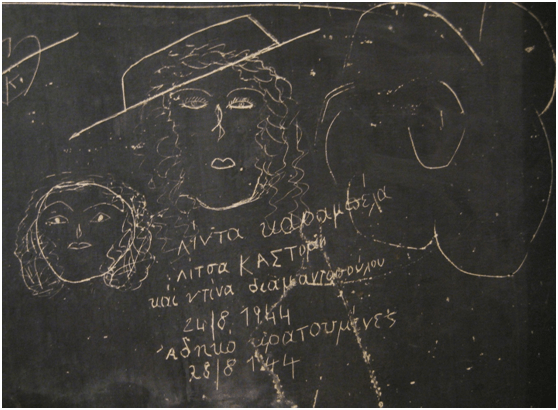 λίντα καραμπέλα
λιτσα ΚΑΣΤΟΡΗ
και ντίνα διαμαντοπούλου
24/8 1944
Αδηκο κρατουμένες
28/8 1944